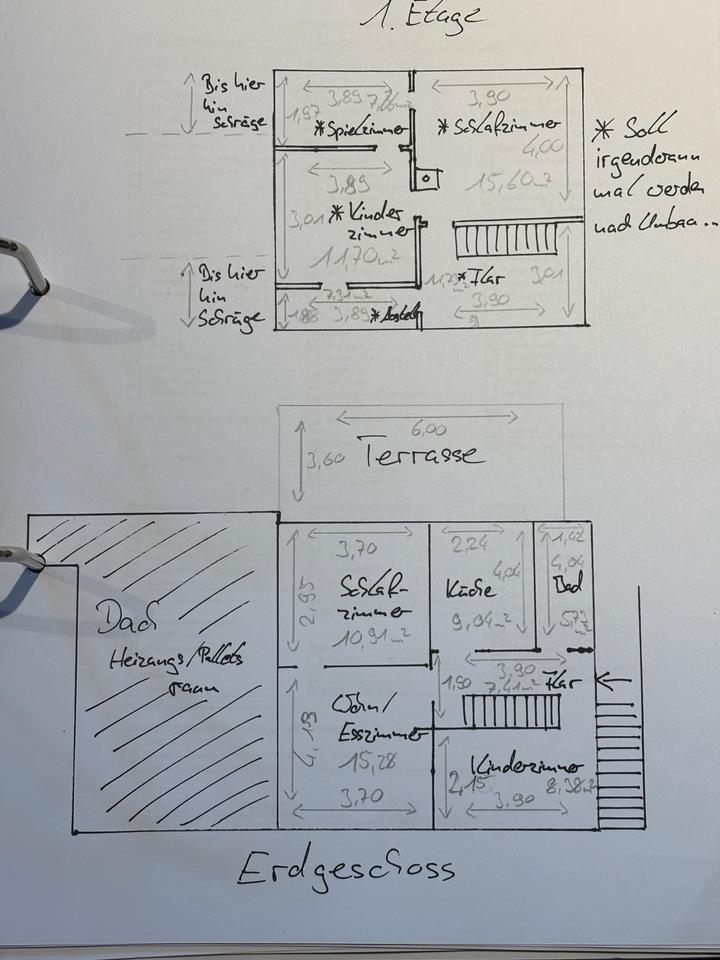 1. Etage
Bis hier
hin
Schräge
3,89
7,66m²
1,97
*Spielzimmer
3,90
*Schlafzimmer
4,00
15,60m²
* Soll
irgendwann
mal werden
nach Umbau..
3,89
3,01
*Kinder
zimmer
11,70m²
Bis hier
hin
Schräge
7,31m²
1,88
3,89
*Flur
3,01
3,90
6,00
3,60
Terrasse
3,70
2,95
Schlaf-
zimmer
10,91m²
2,24
4,04
Küche
9,04m²
1,42
4,04
Bad
5,73
m²
Dach
Heizungs/Pellets
raum
3,90
1,90
7,41m²
Flur
Wohn/
Esszimmer
4,13
15,28
3,70
Kinderzimmer
2,15
8,38m²
3,90
Erdgeschoss